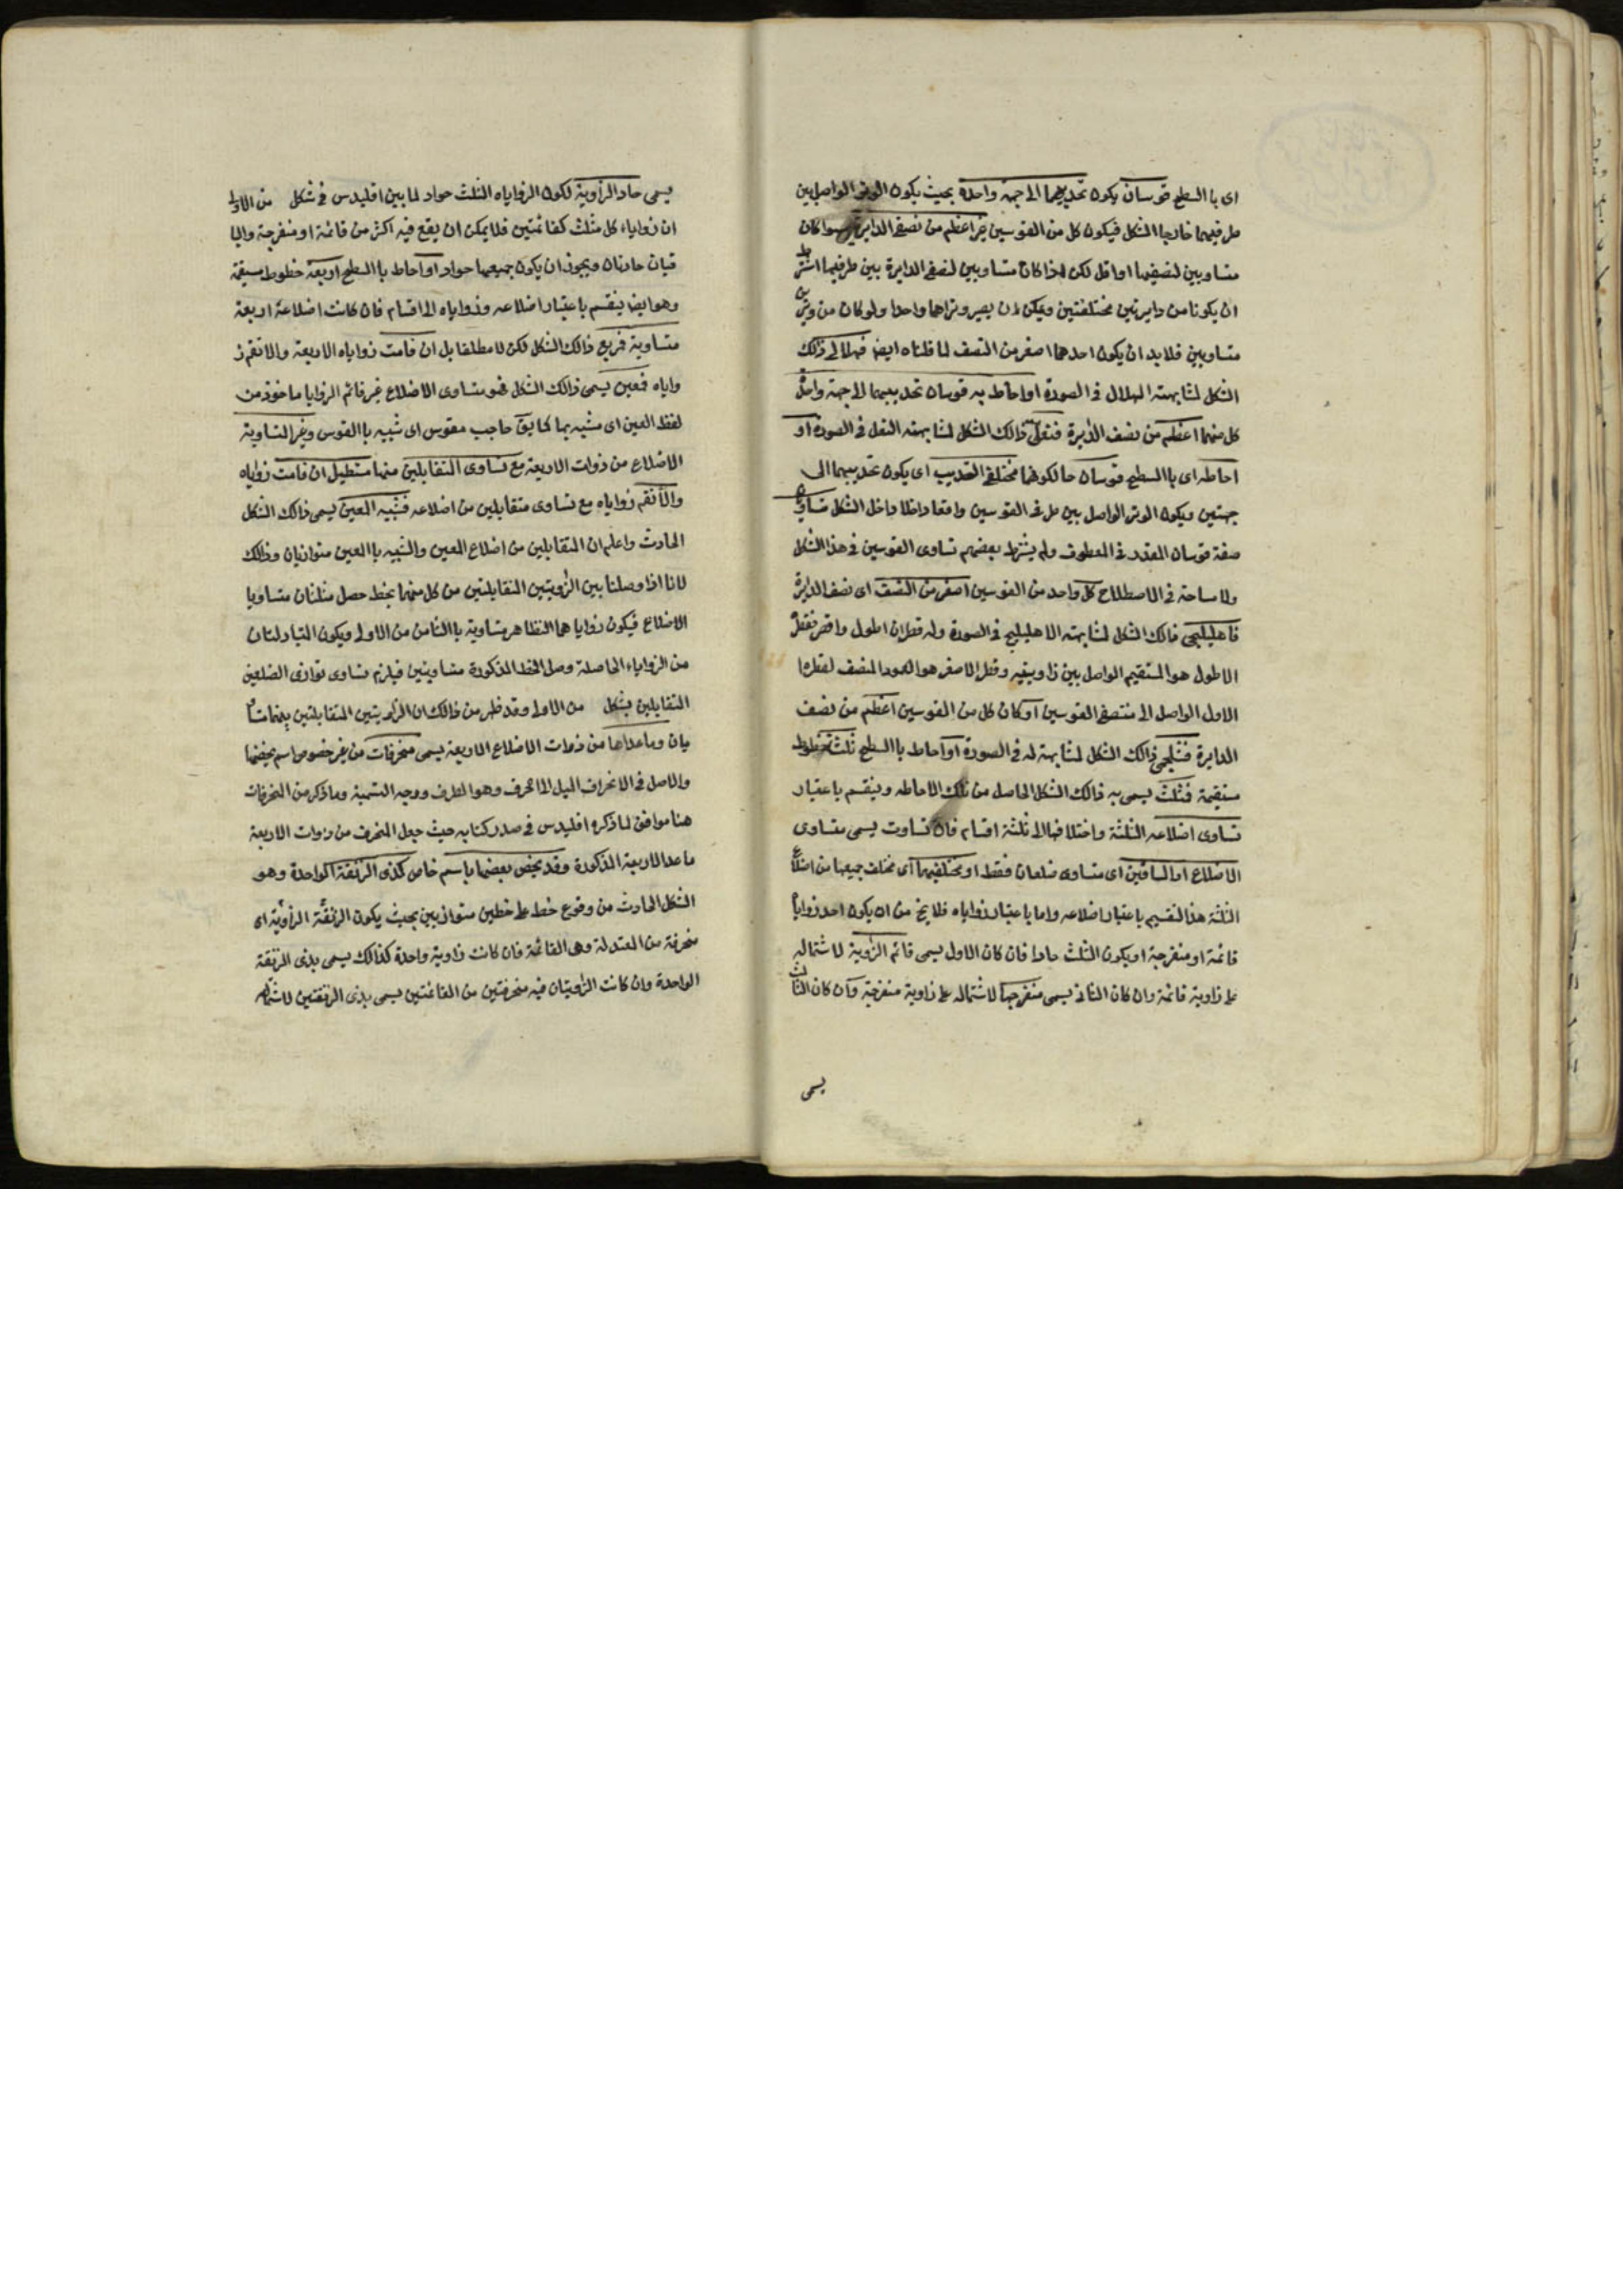 اى باالسطح قوسان يكون تحديبهما الى جهة واحدة بحيث يكون الوتر الواصل بين
طرفيهما خارجا الشكل فيكون كل من القوسين غير اعظم من نصفى الدايرة سوا كان
متساويين لنصفيهما او اقل لكن اذا كان متساويين لنصفى الدايرة بين طرفيهما اشترط
ان يكونا من دايرتين مختلفتين ويمكن ان يصير وتراهما واحدا ولو كان من وترين
متساويين فلا بد ان يكون احدهما اصغر من النصف لما قلناه ايضا فهلالى ذالك
الشكل لمشابهته الهلال فى الصورة او احاط به قوسان تحديبهما الى جهة واحدة
كل منهما اعظم من نصف الدايرة فنعلى ذالك الشكل لمشابهته النعل فى الصورة او
احاطه اى باالسطح قوسان حالكونهما مختلفى التحديب اى يكون تحديبهما الى
جهتين ويكون الوتر الواصل بين طرفى القوسين واقعا داخلا داخل الشكل متساويين
صفة قوسان المقدر فى المعطوف ولم يشترط بعضهم تساوى القوسين فى هذا الشكل
ولا مساحة فى الاصطلاح كل واحد من القوسين اصغر من النصف اى نصف الدايرة
فاهليلجى ذالك الشكل لمشابهته الاهليليج فى الصورة وله قطران اطول واقصر فقطر
الاطول هو المستقيم الواصل بين زاويتيه وقطر الاصغر هو العمود المنصف لقطرا
الاول الواصل الى منتصفى القوسين او كان كل من القوسين اعظم من نصف
الدايرة فشلجمى ذالك الشكل لمشابهته له فى الصورة او احاط باالسطح ثلثة خطوط
مستقيمة فمثلث يسمى به ذالك الشكل الحاصل من تلك الاحاطه وينقسم باعتبار
تساوى اضلاعه الثلثة واختلافها الى ثلثة اقسام فان تساوت يسمى متساوى
الاضلاع او الساقين اى متساوى ضلعان فقط او مختلفيهما اى مختلف جميعها من اضلاع
الثلثة هذا لتقسيم باعتبار اضلاعه واما باعتبار زواياه فلا يخ من ان يكون احد زواياه
قائمة او منفرجة او يكون الثلث حادا فان كان الاول يسمى قائم الزاوية لاشتماله
على زاوية قائمة وان كان الثانى يسمى منفرجها لاشتماله على زاوية منفرجة وان كان الثالث
يسمى
يسمى حاد الزاوية لكون الزواياه الثلث حواد لما بين اقليدس فى شكل من الاولى
ان زواياء كل مثلث كقائمتين فلا يمكن ان يقع فيه اكثر من قائمة او منفرجة والبا
قيان حادتان ويجوز ان يكون جميعها حواد او احاط باالسطح اربعة خطوط مستقيمة
وهو ايضا ينقسم باعتبار اضلاعه وزواياه الى اقسام فان كانت اضلاعه اربعة
متساوية فمربع ذالك الشكل لكن لا مطلقا بل ان قامت زواياه الاربعة والا تقم ز
واياه فمعين يسمى ذالك الشكل فهو متساوى الاضلاع غير قائم الزوايا ماخوذ من
لفظ العين اى مشبه بها كما يق حاجب مقوس اى شبيه باالقوس وغير المتساوية
الاضلاع من ذوات الاربعة مع تساوى المتقابلين منها مستطيل ان قامت زواياه
والا تقم زواياه مع تساوى متقابلين من اضلاعه فشبيه المعين يسمى ذالك الشكل
الحادث واعلم ان المتقابلين من اضلاع المعين والشبيه باالمعين متوازيان وذالك
لانا اذا وصلنا بين الزاويتين المتقابلتين من كل منهما بخط حصل مثلثان متساويا
الاضلاع فيكون زواياهما النظاهر متساوية باالثامن من الاولى ويكون المتبادلتان
من الزواياء الحاصلة وصل الخط المذكورة متساويتين فيلزم تساوى توازى الضلعين
المتقابلين بشكل من الاولى وقد ظهر من ذالك ان الزاويتين المتقابلتين منهما متسا
يان وما عداها من ذوات الاضلاع الاربعة يسمى منحرفات من غير خصوص اسم بعضها
والاصل فى الانحراف الميل الى الحرف وهو الطرف ووجه التسمية وما ذكر من المنحرفات
هنا موافق لما ذكره اقليدس فى صدر كتابه حيث جعل المنحرف من ذوات الاربعة
ما عدا الاربعة المذكورة وقد يخص بعضها باسم خاص كذى الزنقة الواحدة وهو
الشكل الحادث من وقوع خط على خطين متوازيين بحيث يكون الزنقة الزاوية اى
منحرفة من المعتدلة وهى القائمة فان كانت زاوية واحدة كذالك يسمى بذى الزنقة
الواحدة وان كانت الزاويتان فيه منحرفتين من القائمتين يسمى بذى الزنقتين لاشتماله